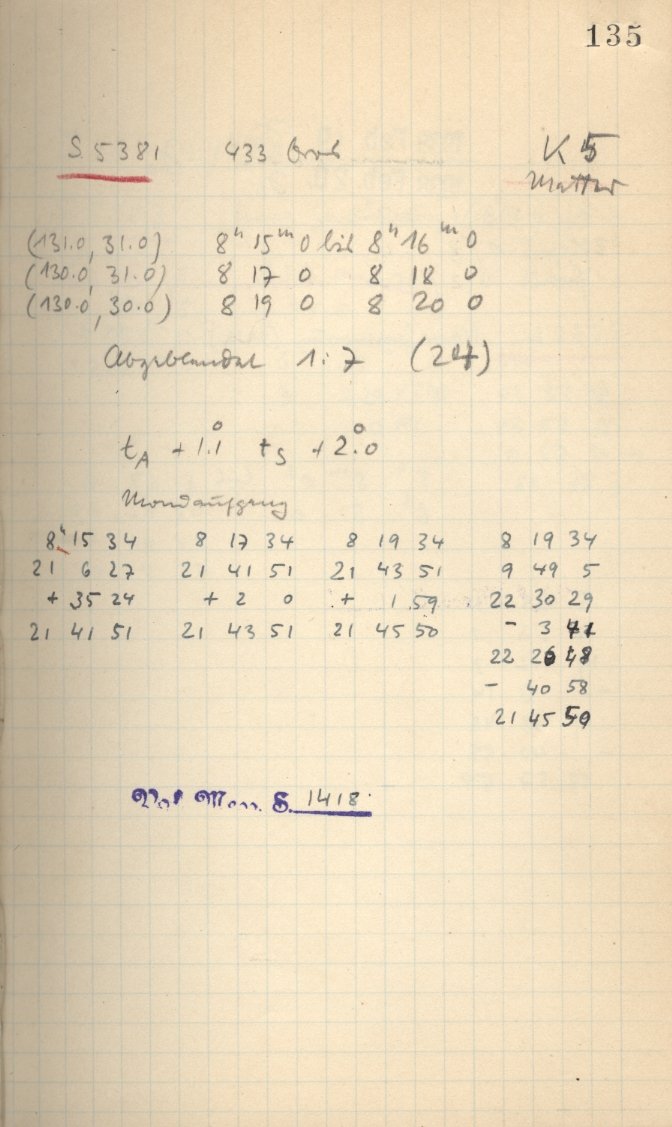 135
S. 5381 433 Eros K 5
Matter
(131.0, 31.0) 8ʰ 15ᵐ 0 bis 8ʰ 16ᵐ 0
(130.0, 31.0) 8 17 0 8 18 0
(130.0, 30.0) 8 19 0 8 20 0
Abgeblendet 1:7 (24)
t_A + 1.°1 t_S + 2.°0
Mondaufgang
8ʰ 15 34 8 17 34 8 19 34 8 19 34
21 6 27 21 41 51 21 43 51 9 49 5
+ 35 24 + 2 0 + 1 59 22 30 29
21 41 51 21 43 51 21 45 50 - 3 41
22 26 48
- 40 58
21 45 50
S. 1418